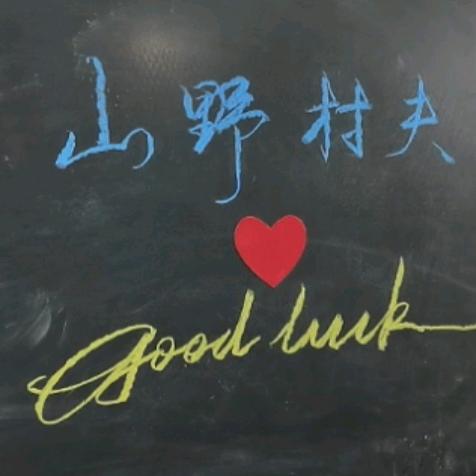 山野村夫
Good luck